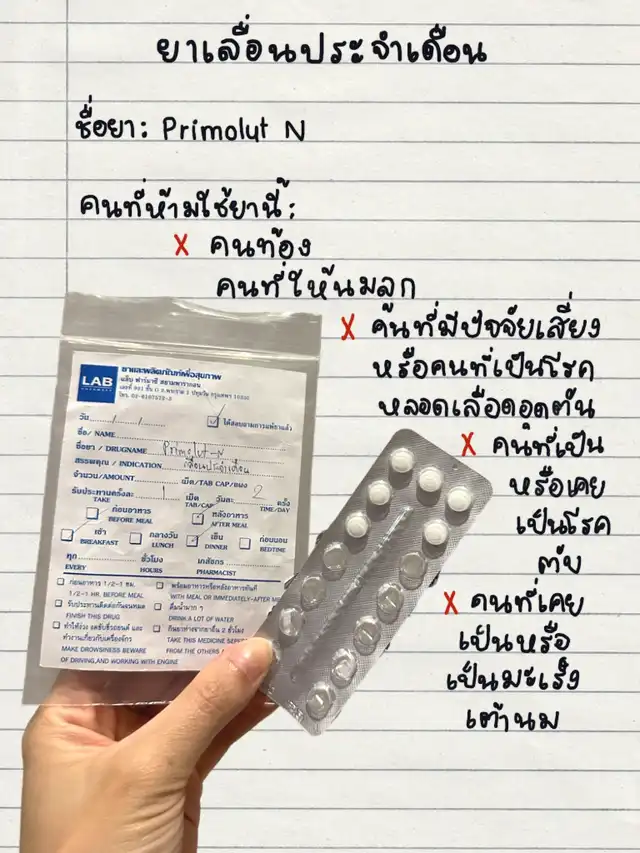 ยาเลื่อนประจำเดือน
ชื่อยา: Primolut N
คนที่ห้ามใช้ยานี้:
X คนท้อง
คนที่ให้นมลูก
X คนที่มีปัจจัยเสี่ยง
หรือคนที่เป็นโรค
หลอดเลือดอุดตัน
X คนที่เป็น
หรือเคย
เป็นโรค
ตับ
X คนที่เคย
เป็นหรือ
เป็นมะเร็ง
เต้านม
LAB
ยาและผลิตภัณฑ์เพื่อสุขภาพ
แล็บ ฟาร์มาซี สยามพารากอน
วัน / /
ได้สอบถามการแพ้ยาแล้ว
ชื่อ/ NAME
ชื่อยา / DRUGNAME Primolut-N
สรรพคุณ / INDICATION เลื่อนประจำเดือน
จำนวน/AMOUNT เม็ด/TAB CAP/ซอง
รับประทานครั้งละ 1 เม็ด วันละ 2 ครั้ง
TAKE TAB/CAP TIME/DAY
ก่อนอาหาร หลังอาหาร
BEFORE MEAL AFTER MEAL
เช้า กลางวัน เย็น ก่อนนอน
BREAKFAST LUNCH DINNER BEDTIME
ทุก ชั่วโมง เภสัชกร
EVERY HOURS PHARMACIST
ก่อนอาหาร 1/2-1 ชม. พร้อมอาหารหรือหลังอาหารทันที
1/2-1 HR. BEFORE MEAL WITH MEAL OR IMMEDIATELY-AFTER
รับประทานติดต่อกันจนหมด ดื่มน้ำมาก ๆ
FINISH THIS DRUG DRINK A LOT OF WATER
ทำให้ง่วง งดขับขี่รถยนต์ และ กินยาห่างจากยาอื่น 2 ชั่วโมง
ทำงานเกี่ยวกับเครื่องจักร TAKE THIS MEDICINE
MAKE DROWSINESS BEWARE FROM THE OTHERS
OF DRIVING,AND WORKING WITH ENGINE